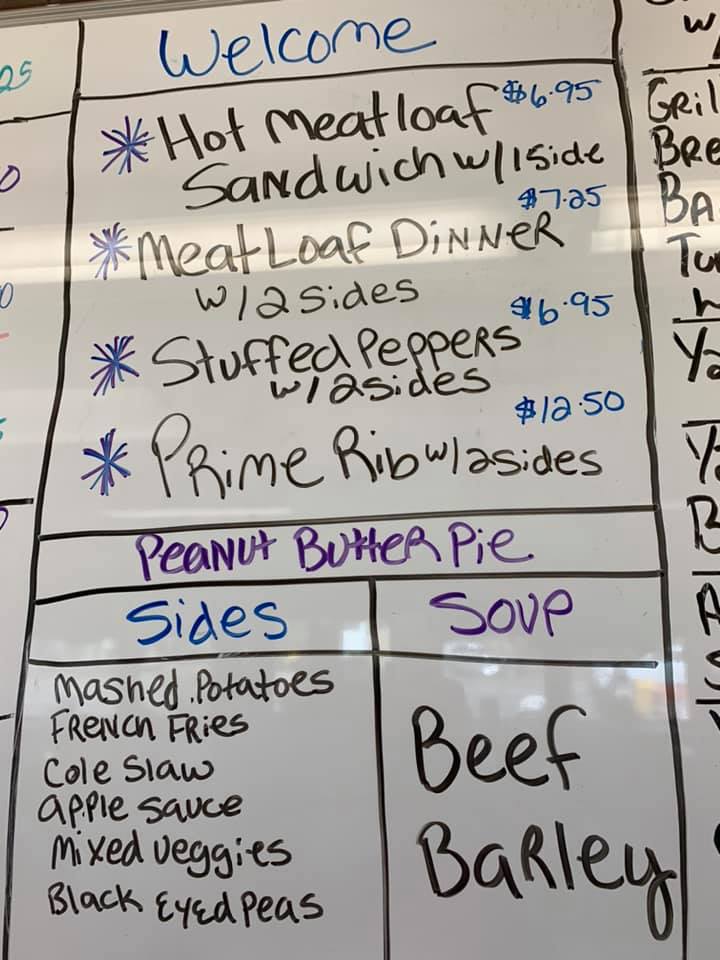 Welcome
$6.95
Hot Meatloaf
Sandwich w/1side
$7.25
Meat Loaf Dinner
w/2sides
$6.95
Stuffed Peppers
w/2sides
$12.50
Prime Rib w/2sides
Peanut Butter Pie
Sides
Mashed Potatoes
French Fries
Cole Slaw
apple sauce
Mixed veggies
Black Eyed Peas
Soup
Beef
Barley
25
w/